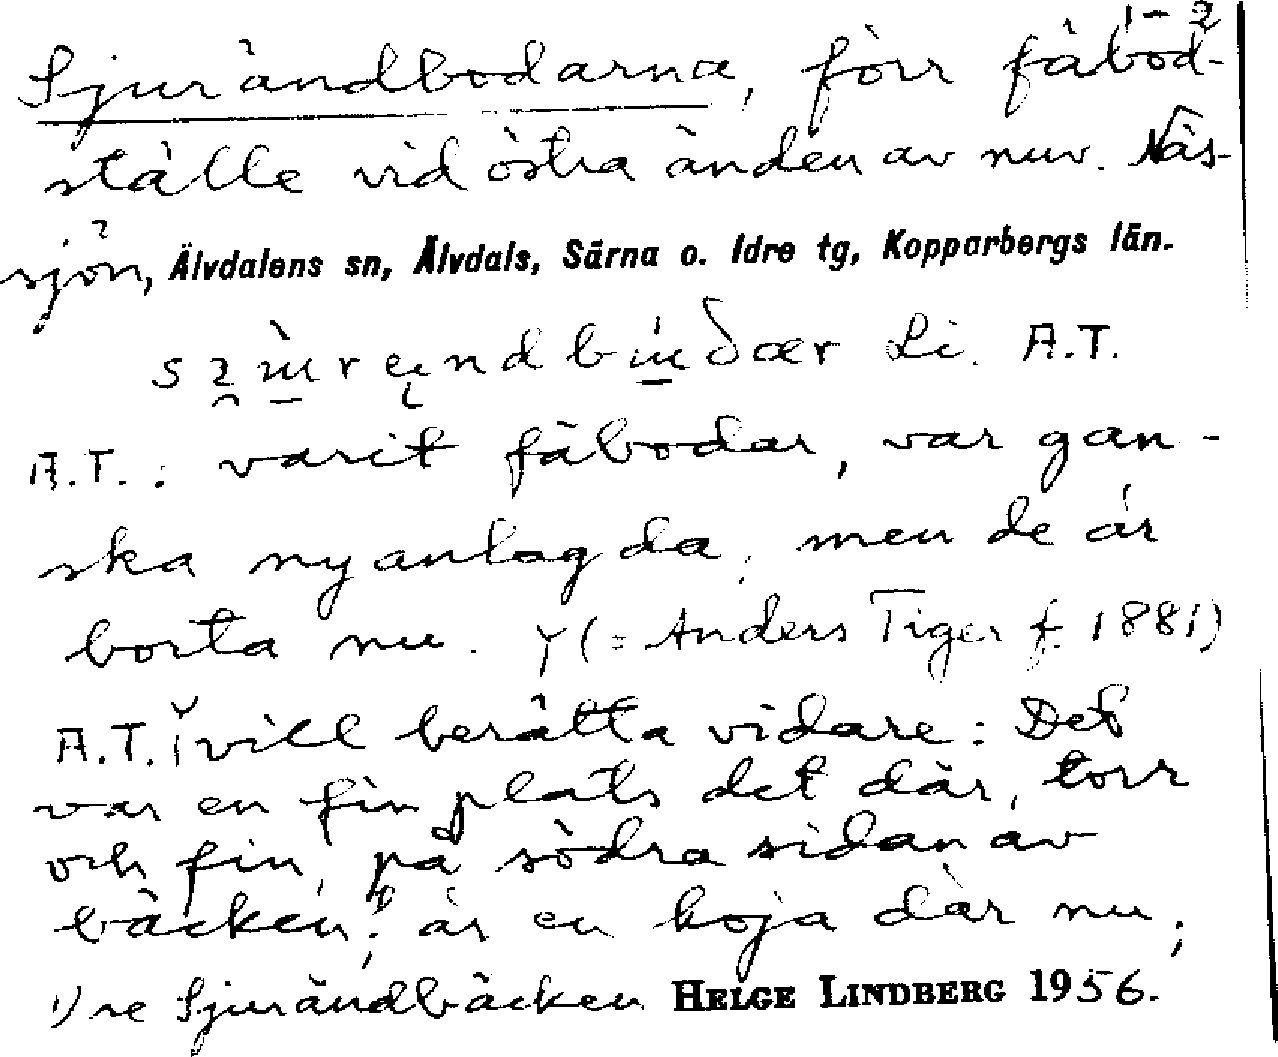 1-2
Sjurändbodarna, förr fäbod-
ställe vid östra änden av nuv. Näs-
sjön, Älvdalens sn, Älvdals, Särna o. Idre tg, Kopparbergs län.
Li. A.T.
A.T.: varit fäbodar, var gan-
ska nyanlagda, men de är
borta nu. (= Anders Tiger f. 1881)
A.T. vill berätta vidare: Det
var en fin plats det där, torr
och fin, på södra sidan av
bäcken¹⁾; är en koja där nu;
1) se Sjurändbäcken HELGE LINDBERG 1956.